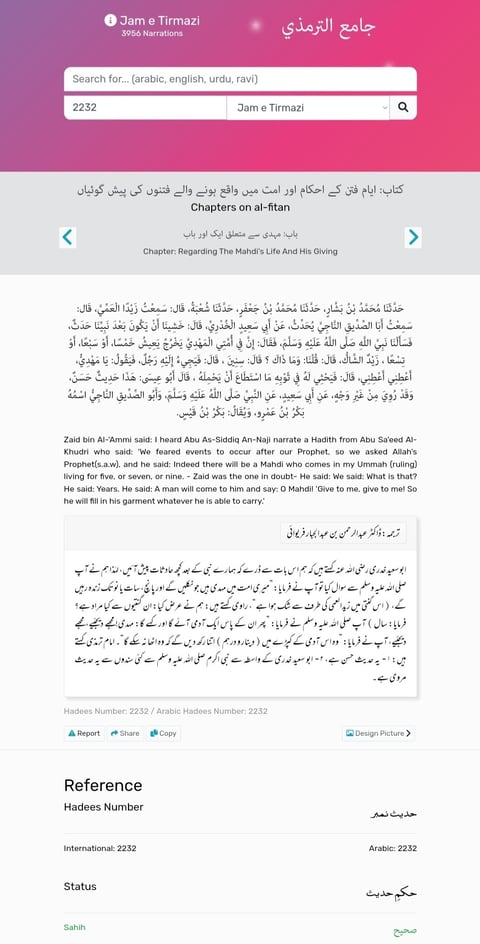 Jam e Tirmazi
3956 Narrations
جامع الترمذي
Search for... (arabic, english, urdu, ravi)
2232
Jam e Tirmazi
کتاب: ایام فتن کے احکام اور امت میں واقع ہونے والے فتنوں کی پیش گوئیاں
Chapters on al-fitan
باب: مہدی سے متعلق ایک اور باب
Chapter: Regarding The Mahdi's Life And His Giving
حَدَّثَنَا مُحَمَّدُ بْنُ بَشَّارٍ، حَدَّثَنَا مُحَمَّدُ بْنُ جَعْفَرٍ، حَدَّثَنَا شُعْبَةُ، قَال: سَمِعْتُ زَيْدًا الْعَمِّيَّ، قَال:
سَمِعْتُ أَبَا الصِّدِّيقِ النَّاجِيَّ يُحَدِّثُ، عَنْ أَبِي سَعِيدٍ الْخُدْرِيِّ، قَالَ: خَشِينَا أَنْ يَكُونَ بَعْدَ نَبِيِّنَا حَدَثٌ،
فَسَأَلْنَا نَبِيَّ اللَّهِ صَلَّى اللَّهُ عَلَيْهِ وَسَلَّمَ، فَقَالَ: إِنَّ فِي أُمَّتِي الْمَهْدِيَّ يَخْرُجُ يَعِيشُ خَمْسًا، أَوْ سَبْعًا، أَوْ
تِسْعًا ، زَيْدٌ الشَّاكُّ، قَالَ: قُلْنَا: وَمَا ذَاكَ ؟ قَالَ: سِنِينَ ، قَالَ: فَيَجِيءُ إِلَيْهِ رَجُلٌ، فَيَقُولُ: يَا مَهْدِيُّ،
أَعْطِنِي أَعْطِنِي، قَالَ: فَيَحْثِي لَهُ فِي ثَوْبِهِ مَا اسْتَطَاعَ أَنْ يَحْمِلَهُ ، قَالَ أَبُو عِيسَى: هَذَا حَدِيثٌ حَسَنٌ،
وَقَدْ رُوِيَ مِنْ غَيْرِ وَجْهٍ، عَنْ أَبِي سَعِيدٍ، عَنِ النَّبِيِّ صَلَّى اللَّهُ عَلَيْهِ وَسَلَّمَ، وَأَبُو الصِّدِّيقِ النَّاجِيُّ اسْمُهُ
بَكْرُ بْنُ عَمْرٍو، وَيُقَالُ: بَكْرُ بْنُ قَيْسٍ.
Zaid bin Al-'Ammi said: I heard Abu As-Siddiq An-Naji narrate a Hadith from Abu Sa'eed Al-
Khudri who said: 'We feared events to occur after our Prophet, so we asked Allah's
Prophet(s.a.w), and he said: Indeed there will be a Mahdi who comes in my Ummah (ruling)
living for five, or seven, or nine. - Zaid was the one in doubt- He said: We said: What is that?
He said: Years. He said: A man will come to him and say: O Mahdi! 'Give to me, give to me! So
he will fill in his garment whatever he is able to carry.'
ترجمہ: ڈاکٹر عبدالرحمن بن عبدالجبار فریوائی
ابو سعید خدری رضی الله عنہ کہتے ہیں کہ ہم اس بات سے ڈرے کہ ہمارے نبی کے بعد کچھ حادثات پیش آئیں، لہٰذا ہم نے آپ
صلی اللہ علیہ وسلم سے سوال کیا تو آپ نے فرمایا: ”میری امت میں مہدی ہیں جو نکلیں گے اور پانچ، سات یا نو تک زندہ رہیں
گے، ( اس گنتی میں زید العمی کی طرف سے شک ہوا ہے“، راوی کہتے ہیں: ہم نے عرض کیا: ان گنتیوں سے کیا مراد ہے؟
فرمایا: سال ) آپ صلی اللہ علیہ وسلم نے فرمایا: ”پھر ان کے پاس ایک آدمی آئے گا اور کہے گا: مہدی! مجھے دیجئیے، مجھے
دیجئیے، آپ نے فرمایا: ”وہ اس آدمی کے کپڑے میں ( دینار و درہم ) اتنا رکھ دیں گے کہ وہ اٹھا نہ سکے گا“۔ امام ترمذی کہتے
ہیں: ۱- یہ حدیث حسن ہے، ۲- ابو سعید خدری کے واسطہ سے نبی اکرم صلی اللہ علیہ وسلم سے کئی سندوں سے یہ حدیث
مروی ہے۔
Hadees Number: 2232 / Arabic Hadees Number: 2232
Report Share Copy Design Picture
Reference
Hadees Number
حدیث نمبر
International: 2232
Arabic: 2232
Status
حکم حدیث
Sahih
صحیح